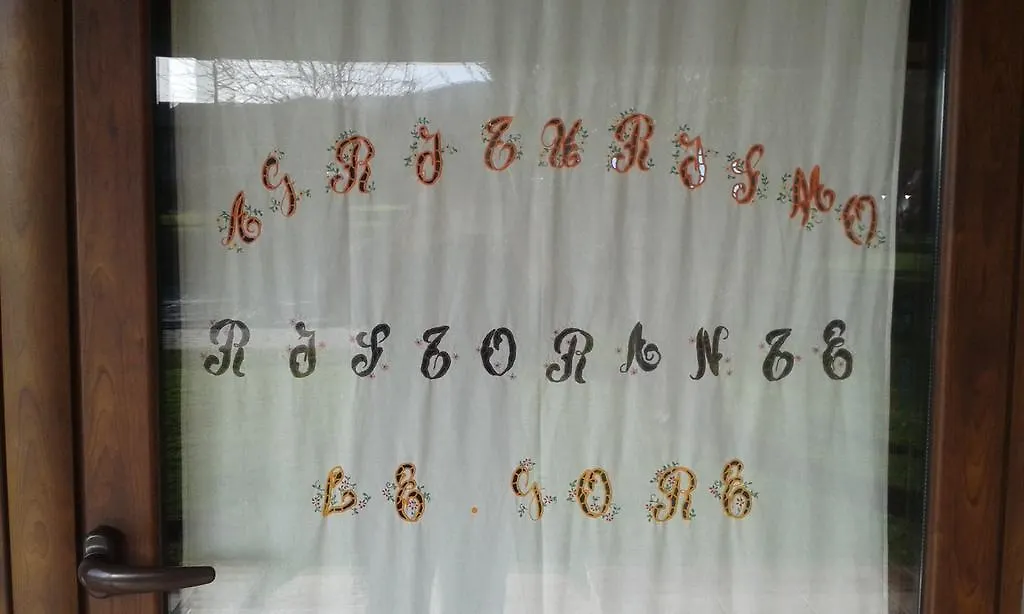 AGRITURISMO
RISTORANTE
LE.GORE